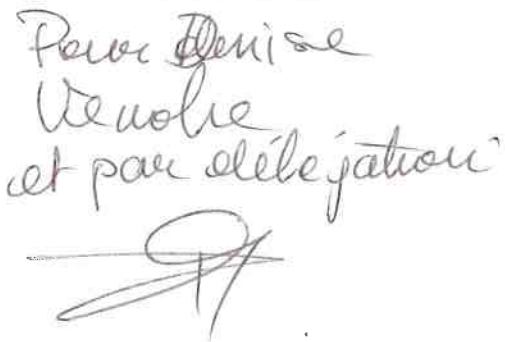 Pour Denise
Vienolre
et par délégation